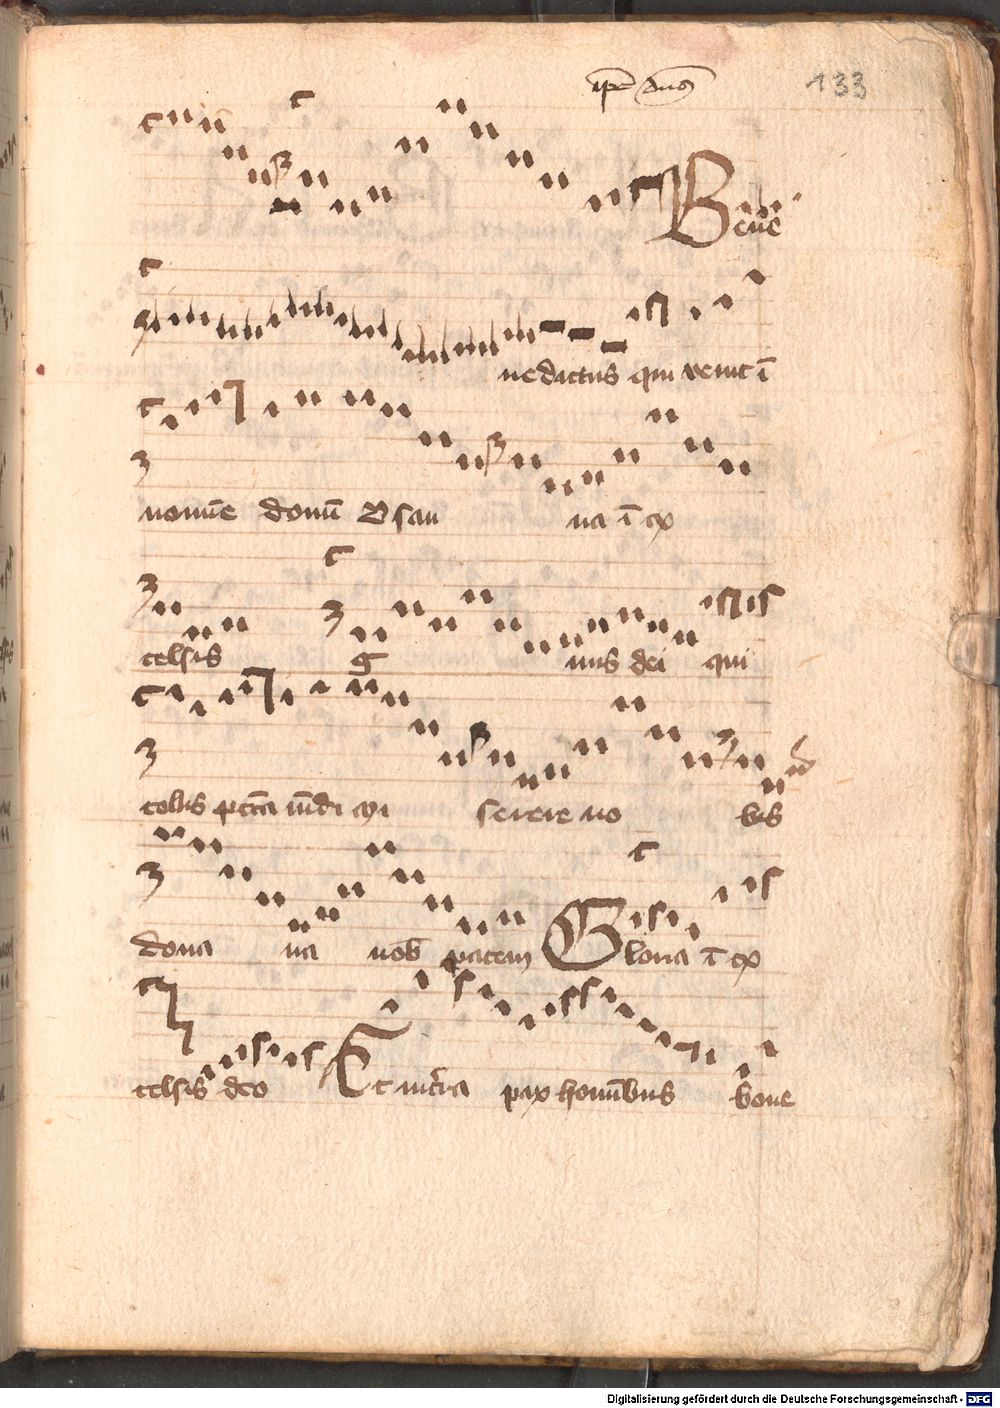 133
Bene
nedictus qui venit ī
nomīe domī O san na ī ex
celsis nus dei qui
tollis pctā mūdi mi serere no bis
dona na nob pacem Gloria ī ex
celsis deo Et in terra pax homībus bone
Digitalisierung gefördert durch die Deutsche Forschungsgemeinschaft - DFG